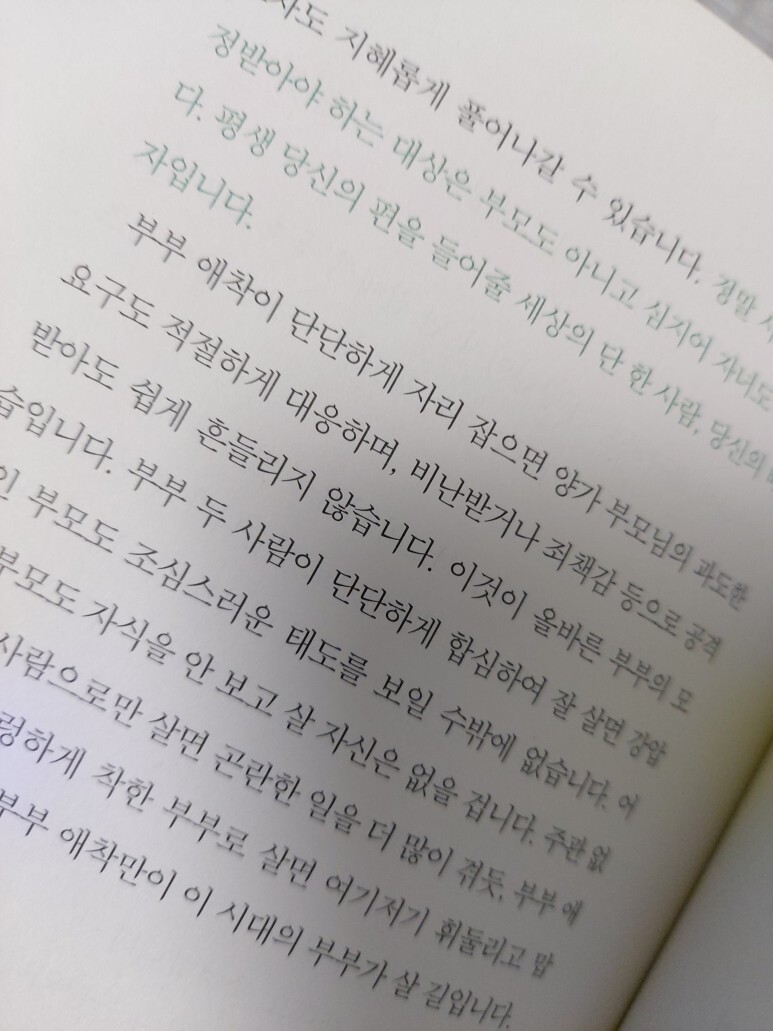 지혜롭게 풀어나갈 수 있습니다. 정말
정받아야 하는 대상은 부모도 아니고 심지어 자녀도
다. 평생 당신의 편을 들어줄 세상의 단 한 사람, 당신의
자입니다.
부부 애착이 단단하게 자리 잡으면 양가 부모님의 과도한
요구도 적절하게 대응하며, 비난받거나 죄책감 등으로 공격
받아도 쉽게 흔들리지 않습니다. 이것이 올바른 부부의 모
습입니다. 부부 두 사람이 단단하게 합심하여 잘 살면 강압
인 부모도 조심스러운 태도를 보일 수밖에 없습니다. 어
부모도 자식을 안 보고 살 자신은 없을 겁니다. 주관 없
사람으로만 살면 곤란한 일을 더 많이 겪듯, 부부 애
령하게 착한 부부로 살면 여기저기 휘둘리고 맙
부부 애착만이 이 시대의 부부가 살 길입니다.